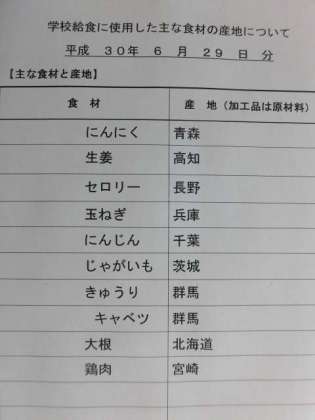 学校給食に使用した主な食材の産地について
平成 30年 6 月 29 日 分
【主な食材と産地】
食 材 産 地（加工品は原材料）
にんにく 青森
生姜 高知
セロリー 長野
玉ねぎ 兵庫
にんじん 千葉
じゃがいも 茨城
きゅうり 群馬
キャベツ 群馬
大根 北海道
鶏肉 宮崎